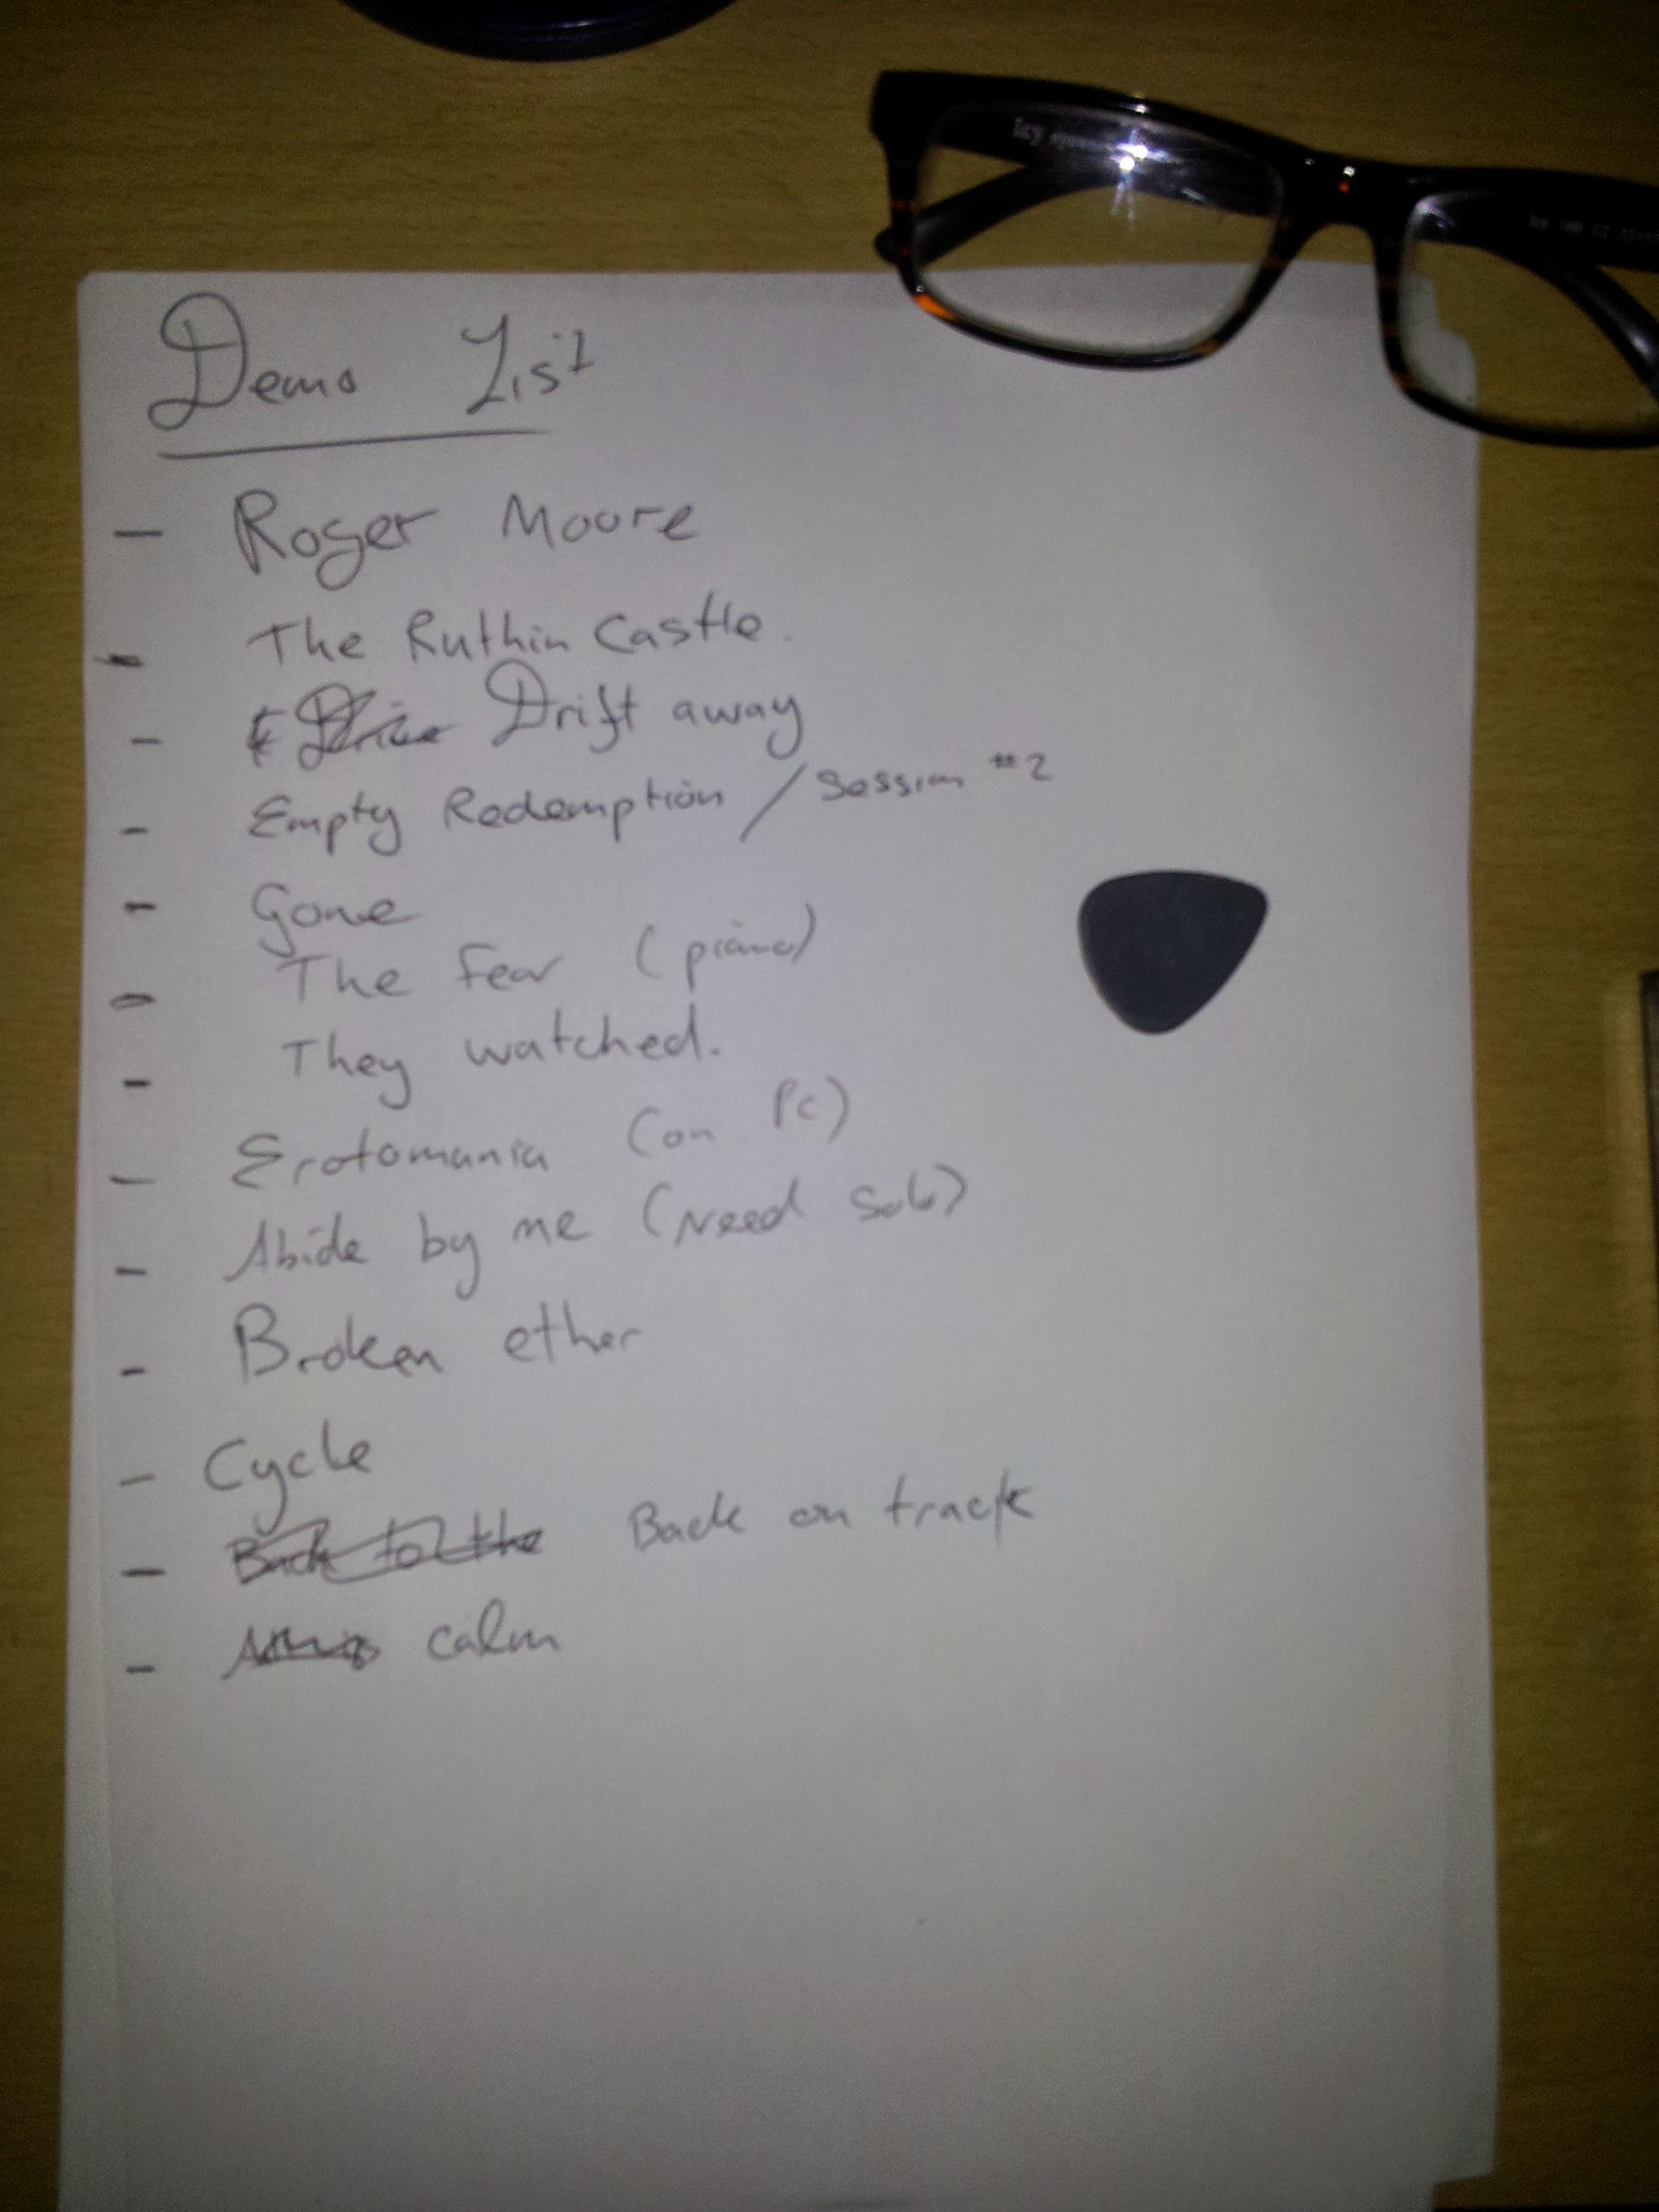 Demo List
- Roger Moore
- The Ruthin Castle.
- Drift away
- Empty Redemption / Session #2
- Gone
- The Fear (piano)
- They watched.
- Erotomania (on PC)
- Abide by me (Need solo)
- Broken ether
- Cycle
- Back to the Back on track
- calm